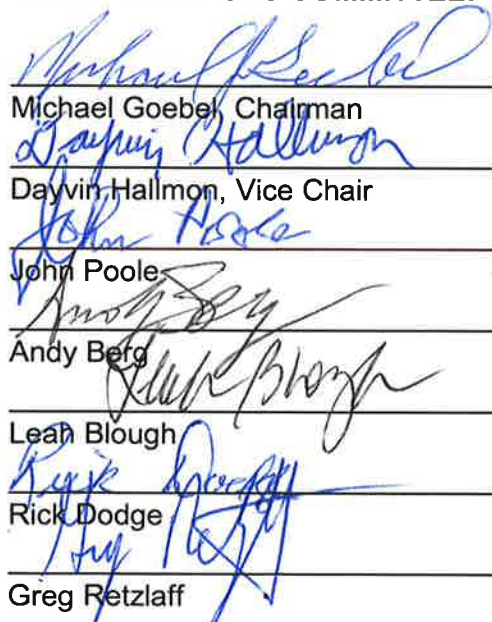 COMMITTEE:
Michael J Goebel
Michael Goebel, Chairman
Dayvin Hallmon
Dayvin Hallmon, Vice Chair
John Poole
John Poole
Andy Berg
Andy Berg
Leah Blough
Leah Blough
Rick Dodge
Rick Dodge
Greg Retzlaff